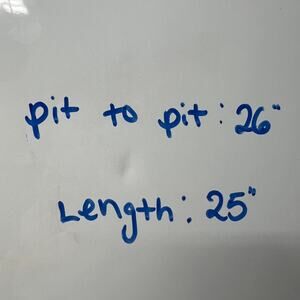 pit to pit: 26"
Length: 25"